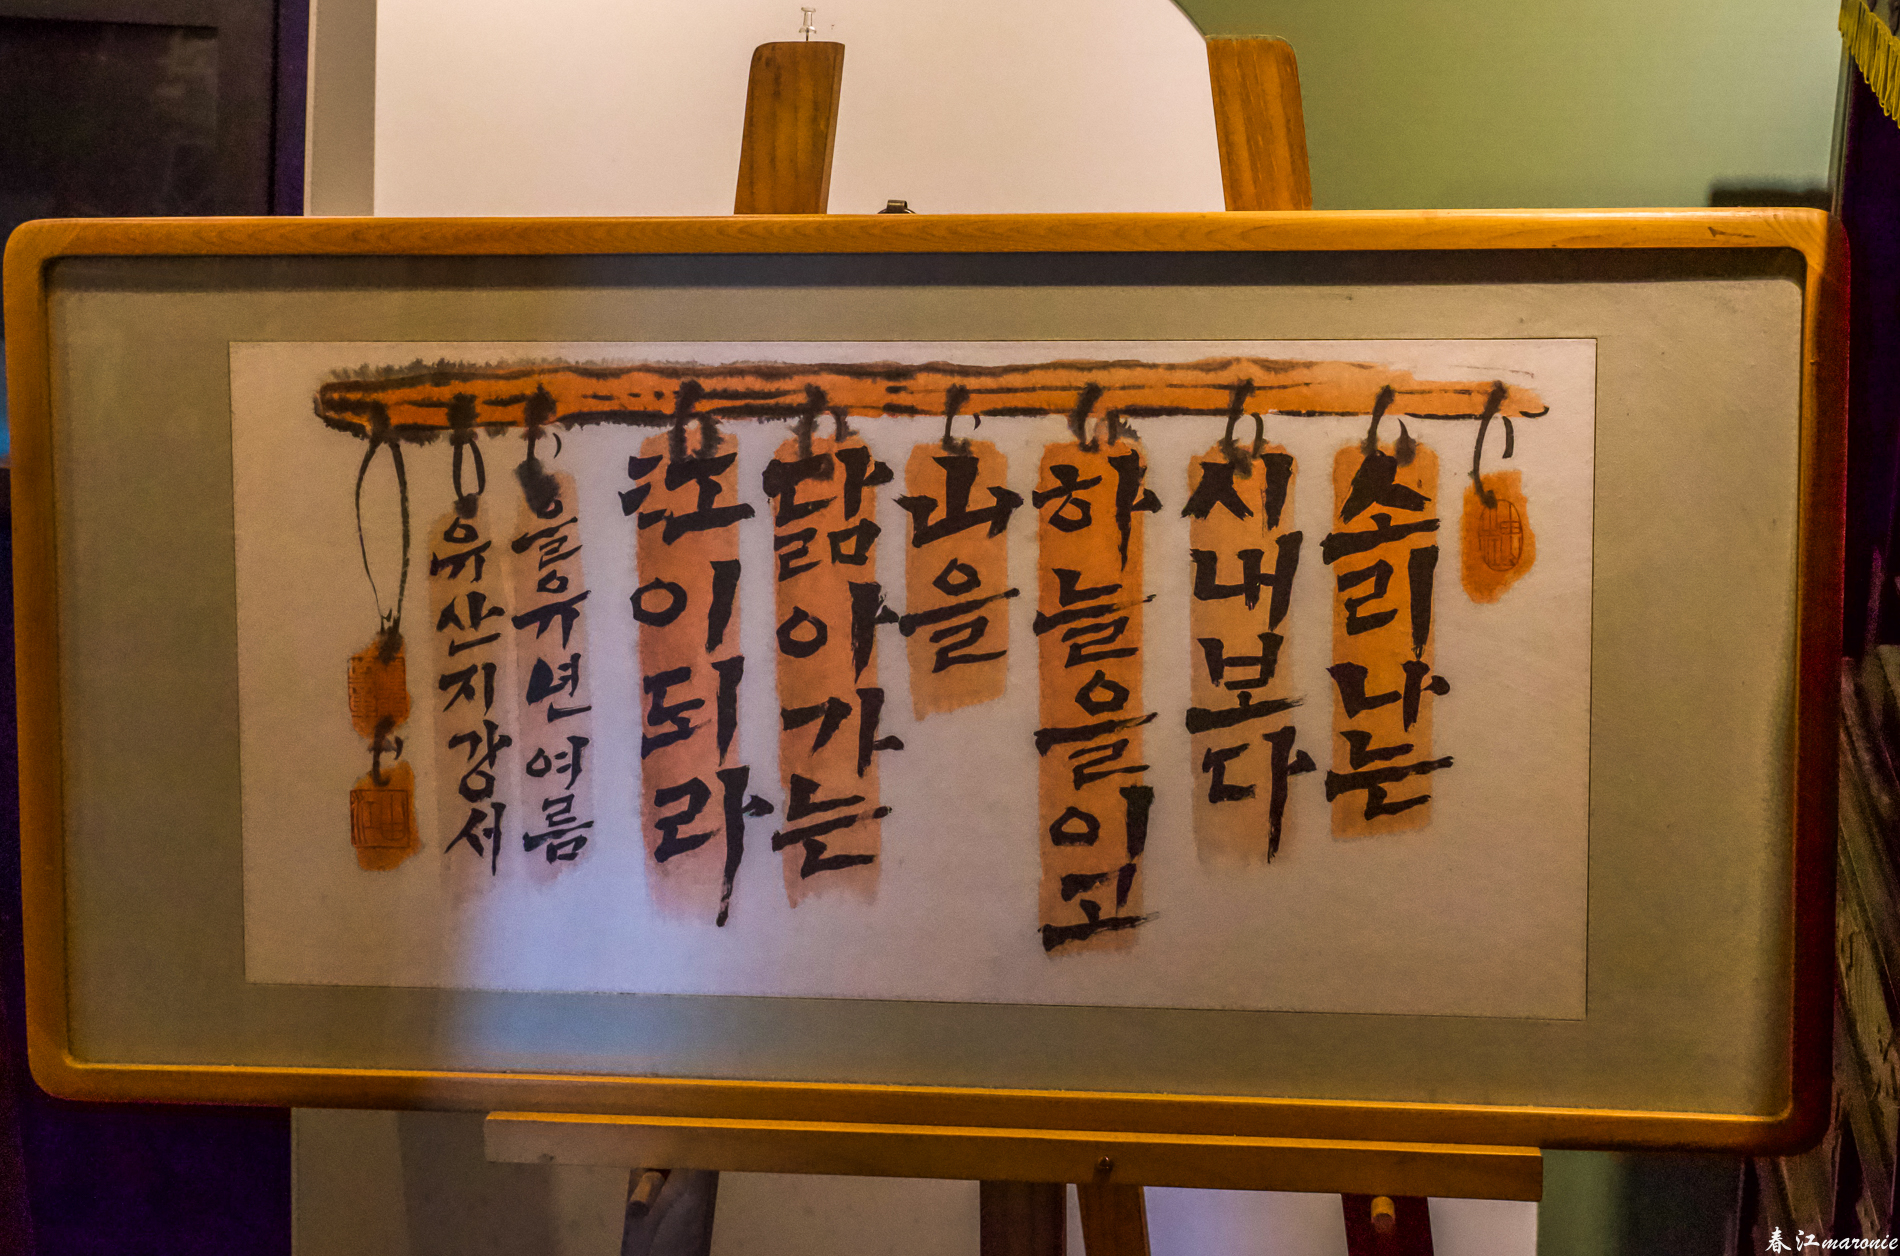 소리나는
시내보다
하늘을이고
山을
닮아가는
江이되라
을유년여름
유산지강서
春江maronie